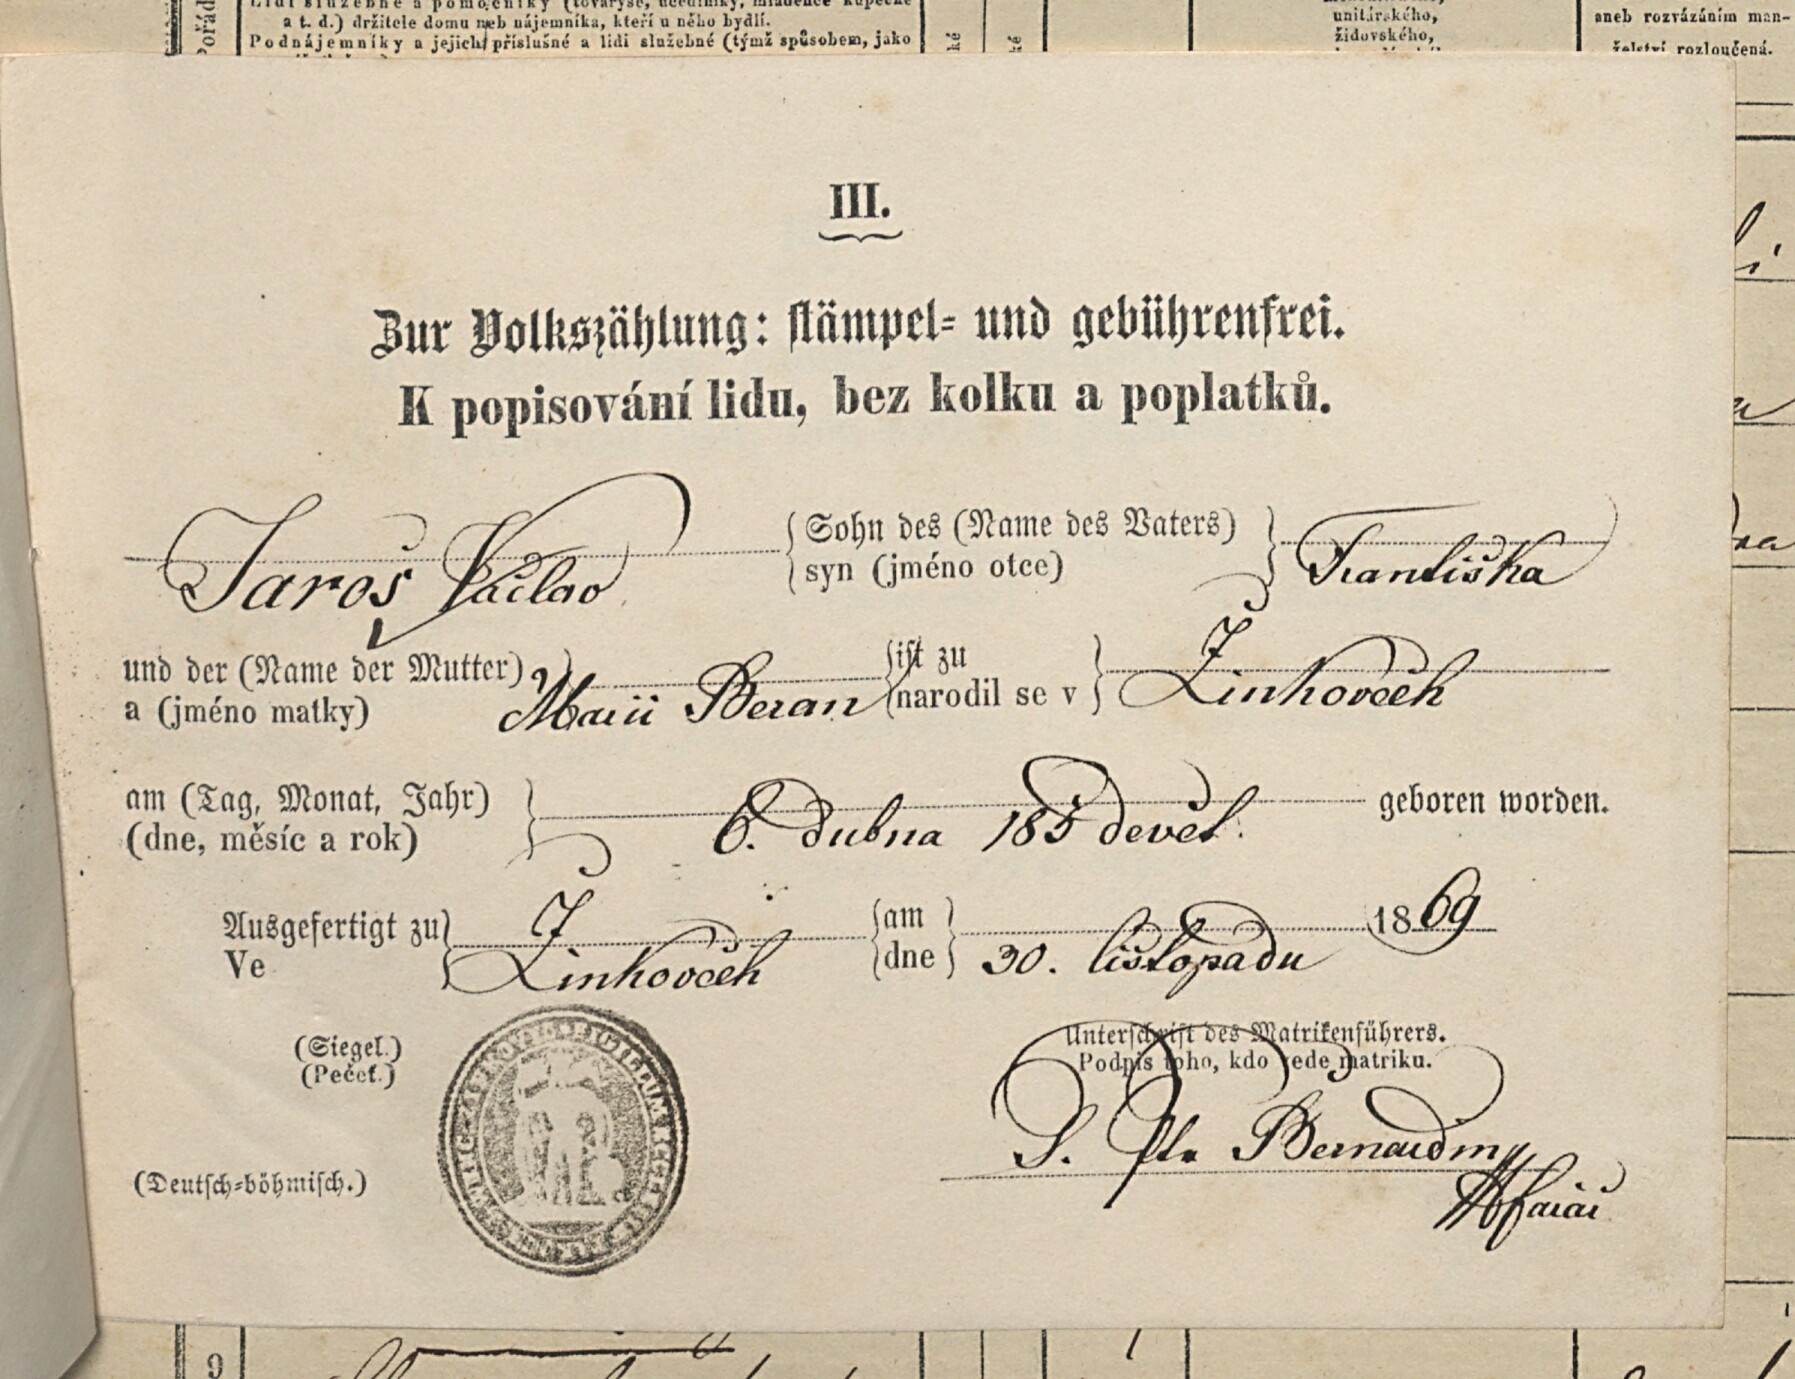 Lidi služebné a pomocníky (tovaryše, učedlníky, mládence kupecké
a t. d.) držitele domu neb nájemníka, kteří u něho bydlí.
Podnájemníky a jejich příslušné a lidi služebné (týmž spůsobem, jako
unitárského,
židovského,
aneb rozvázáním man-
želství rozloučená.
III.
Zur Volkszählung: stämpel- und gebührenfrei.
K popisování lidu, bez kolku a poplatků.
Jaroš Václav
Sohn des (Name des Vaters)
syn (jméno otce)
Františka
und der (Name der Mutter)
a (jméno matky)
Marii Beran
ist zu
narodil se v
Žinkovech
am (Tag, Monat, Jahr)
(dne, měsíc a rok)
6. dubna 185 devět.
geboren worden.
Ausgefertigt zu
Ve
Žinkovech
am
dne
30. listopadu
1869
(Siegel.)
(Pečeť.)
Unterschrift des Matrikenführers.
Podpis toho, kdo vede matriku.
Bernardiny
farář
(Deutsch-böhmisch.)
9